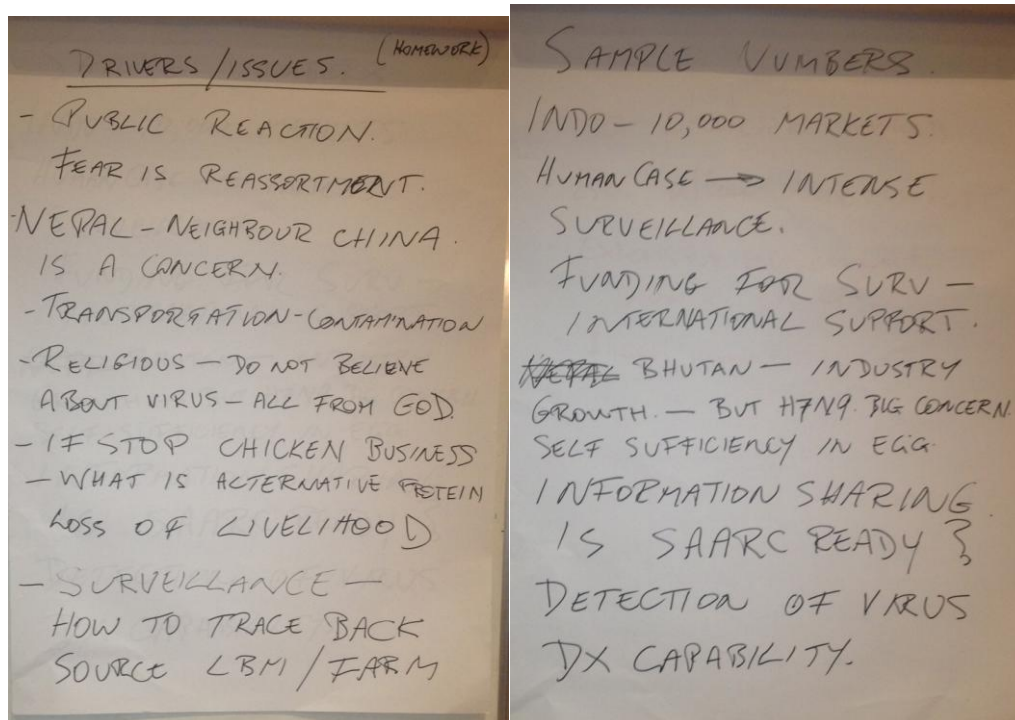 DRIVERS/ISSUES. (HOMEWORK)
- PUBLIC REACTION.
FEAR IS REASSORTMENT.
- NEPAL - NEIGHBOUR CHINA.
IS A CONCERN.
- TRANSPORTATION - CONTAMINATION
- RELIGIOUS - DO NOT BELIEVE
ABOUT VIRUS - ALL FROM GOD.
- IF STOP CHICKEN BUSINESS
- WHAT IS ALTERNATIVE PROTEIN
LOSS OF LIVELIHOOD
- SURVEILLANCE -
HOW TO TRACE BACK
SOURCE LBM / FARM
SAMPLE NUMBERS.
INDO - 10,000 MARKETS.
HUMAN CASE → INTENSE
SURVEILLANCE.
FUNDING FOR SURV -
INTERNATIONAL SUPPORT.
NEPAL BHUTAN - INDUSTRY
GROWTH. - BUT H7N9. BIG CONCERN.
SELF SUFFICIENCY IN EGG.
INFORMATION SHARING
IS SAARC READY }
DETECTION OF VIRUS
DX CAPABILITY.